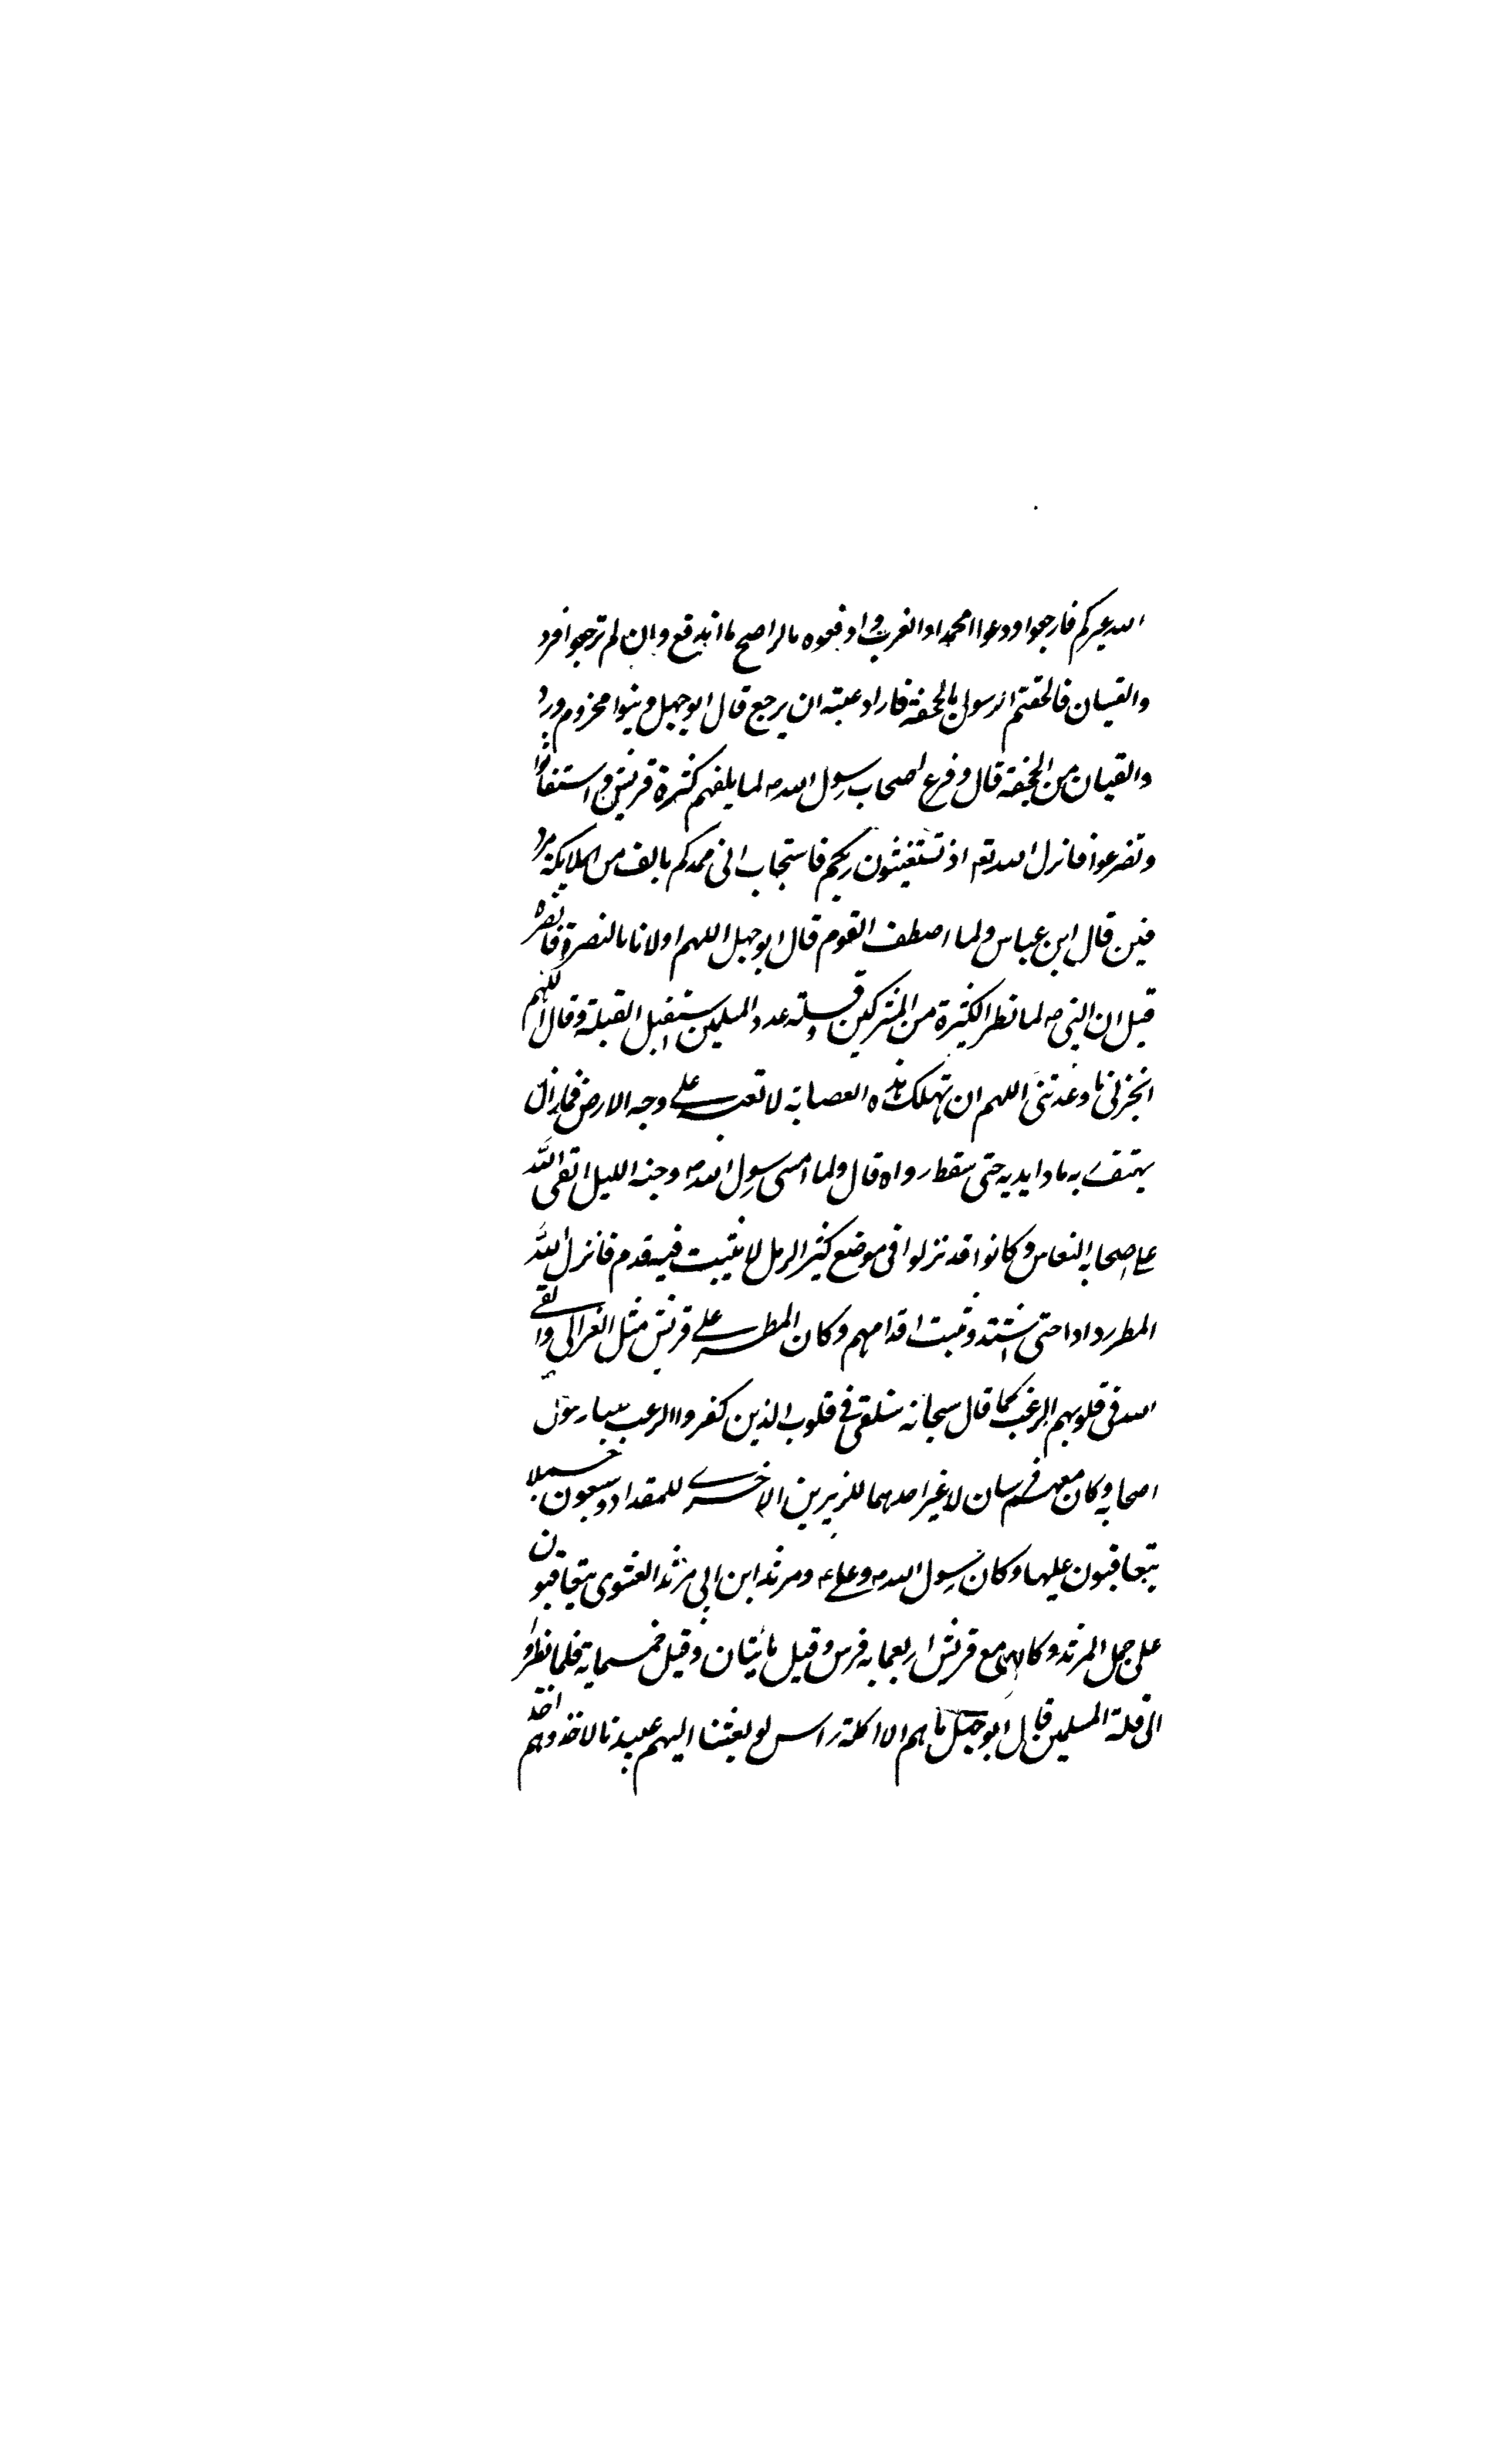 الله عيركم فارجعوا ودعوا محمدا والعرب وادفعوه بالراح ما اندفع وان لم ترجعوا فردوا
والقيان فالحقتم الرسول بالجحفة فاراد عتبة ان يرجع قال ابو جهل وبنوا مخزوم ورد
والقيان من الجحفة قال وفزع اصحاب رسول الله ص لما بلغهم كثرة قريش واستغاثوا
وتضرعوا فانزل الله تعه اذ تستغيثون ربكم فاستجاب انى ممدكم بالف من الملايكة مرد
فين قال ابن عباس ولما اصطف القوم قال ابو جهل اللهم اولانا بالنصرة فانصره
قيل ان النبي ص لما نظر الكثيرة من المشركين وقلة عدد المسلمين استقبل القبلة وقال اللهم
انجز لى ما وعدتنى اللهم ان تهلك هذه العصابة لا تعبد على وجه الارض فما زال
يهتف به مادا يديه حتى سقط رداه قال ولما امسى رسول الله ص وجنه الليل القى الله
على اصحابه النعاس وكانوا قد نزلوا فى موضع كثير الرمل لا يثبت فيه قدم فانزل الله
المطر رذاذا حتى اشتد وثبت اقدامهم وكان المطر على قريش مثل العزالى والقى
الله فى قلوبهم الرعب كما قال سبحانه سنلقى فى قلوب الذين كفروا الرعب
اصحابه وكان معهم فرسان لا غير احدهما للزبير بن الاخرى للمقداد وسبعون جملا
يتعاقبون عليها وكان رسول الله ص وعلى ع ومرثد ابن ابى مرثد الغنوى يتعاقبون
على جمل المرثد وكان مع قريش اربعمايه فرس وقيل مائيتان وقيل خمسماية فلما نظروا
الى قلة المسلمين قال ابو جهل ما هم الا اكلة راس لو بعثنا اليهم عبيدنا لاخذوهم اخذ